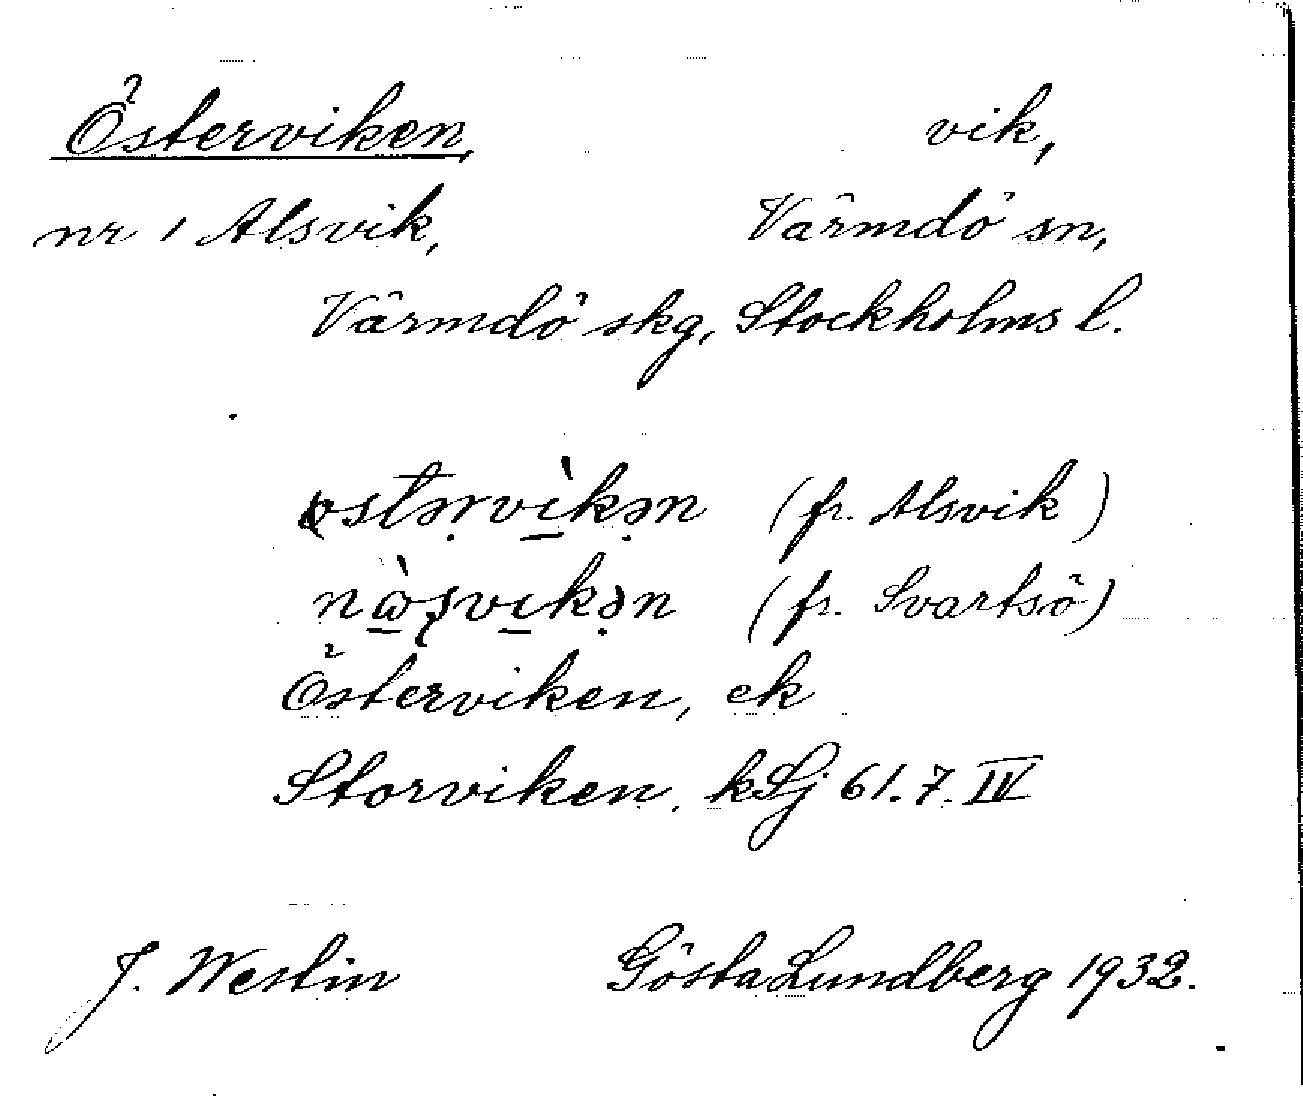 Österviken, vik,
nr 1 Alsvik, Värmdö sn,
Värmdö skg, Stockholms l.
(fr. Alsvik)
(fr. Svartsö)
Österviken, ek
Storviken. kSj 61.7.IV
J. Westin Gösta Lundberg 1932.